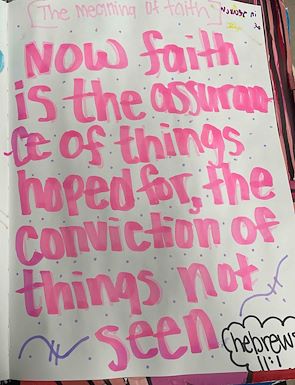 The meaning of faith
Now faith
is the assuran-
ce of things
hoped for, the
conviction of
things not
seen
hebrews
11:1